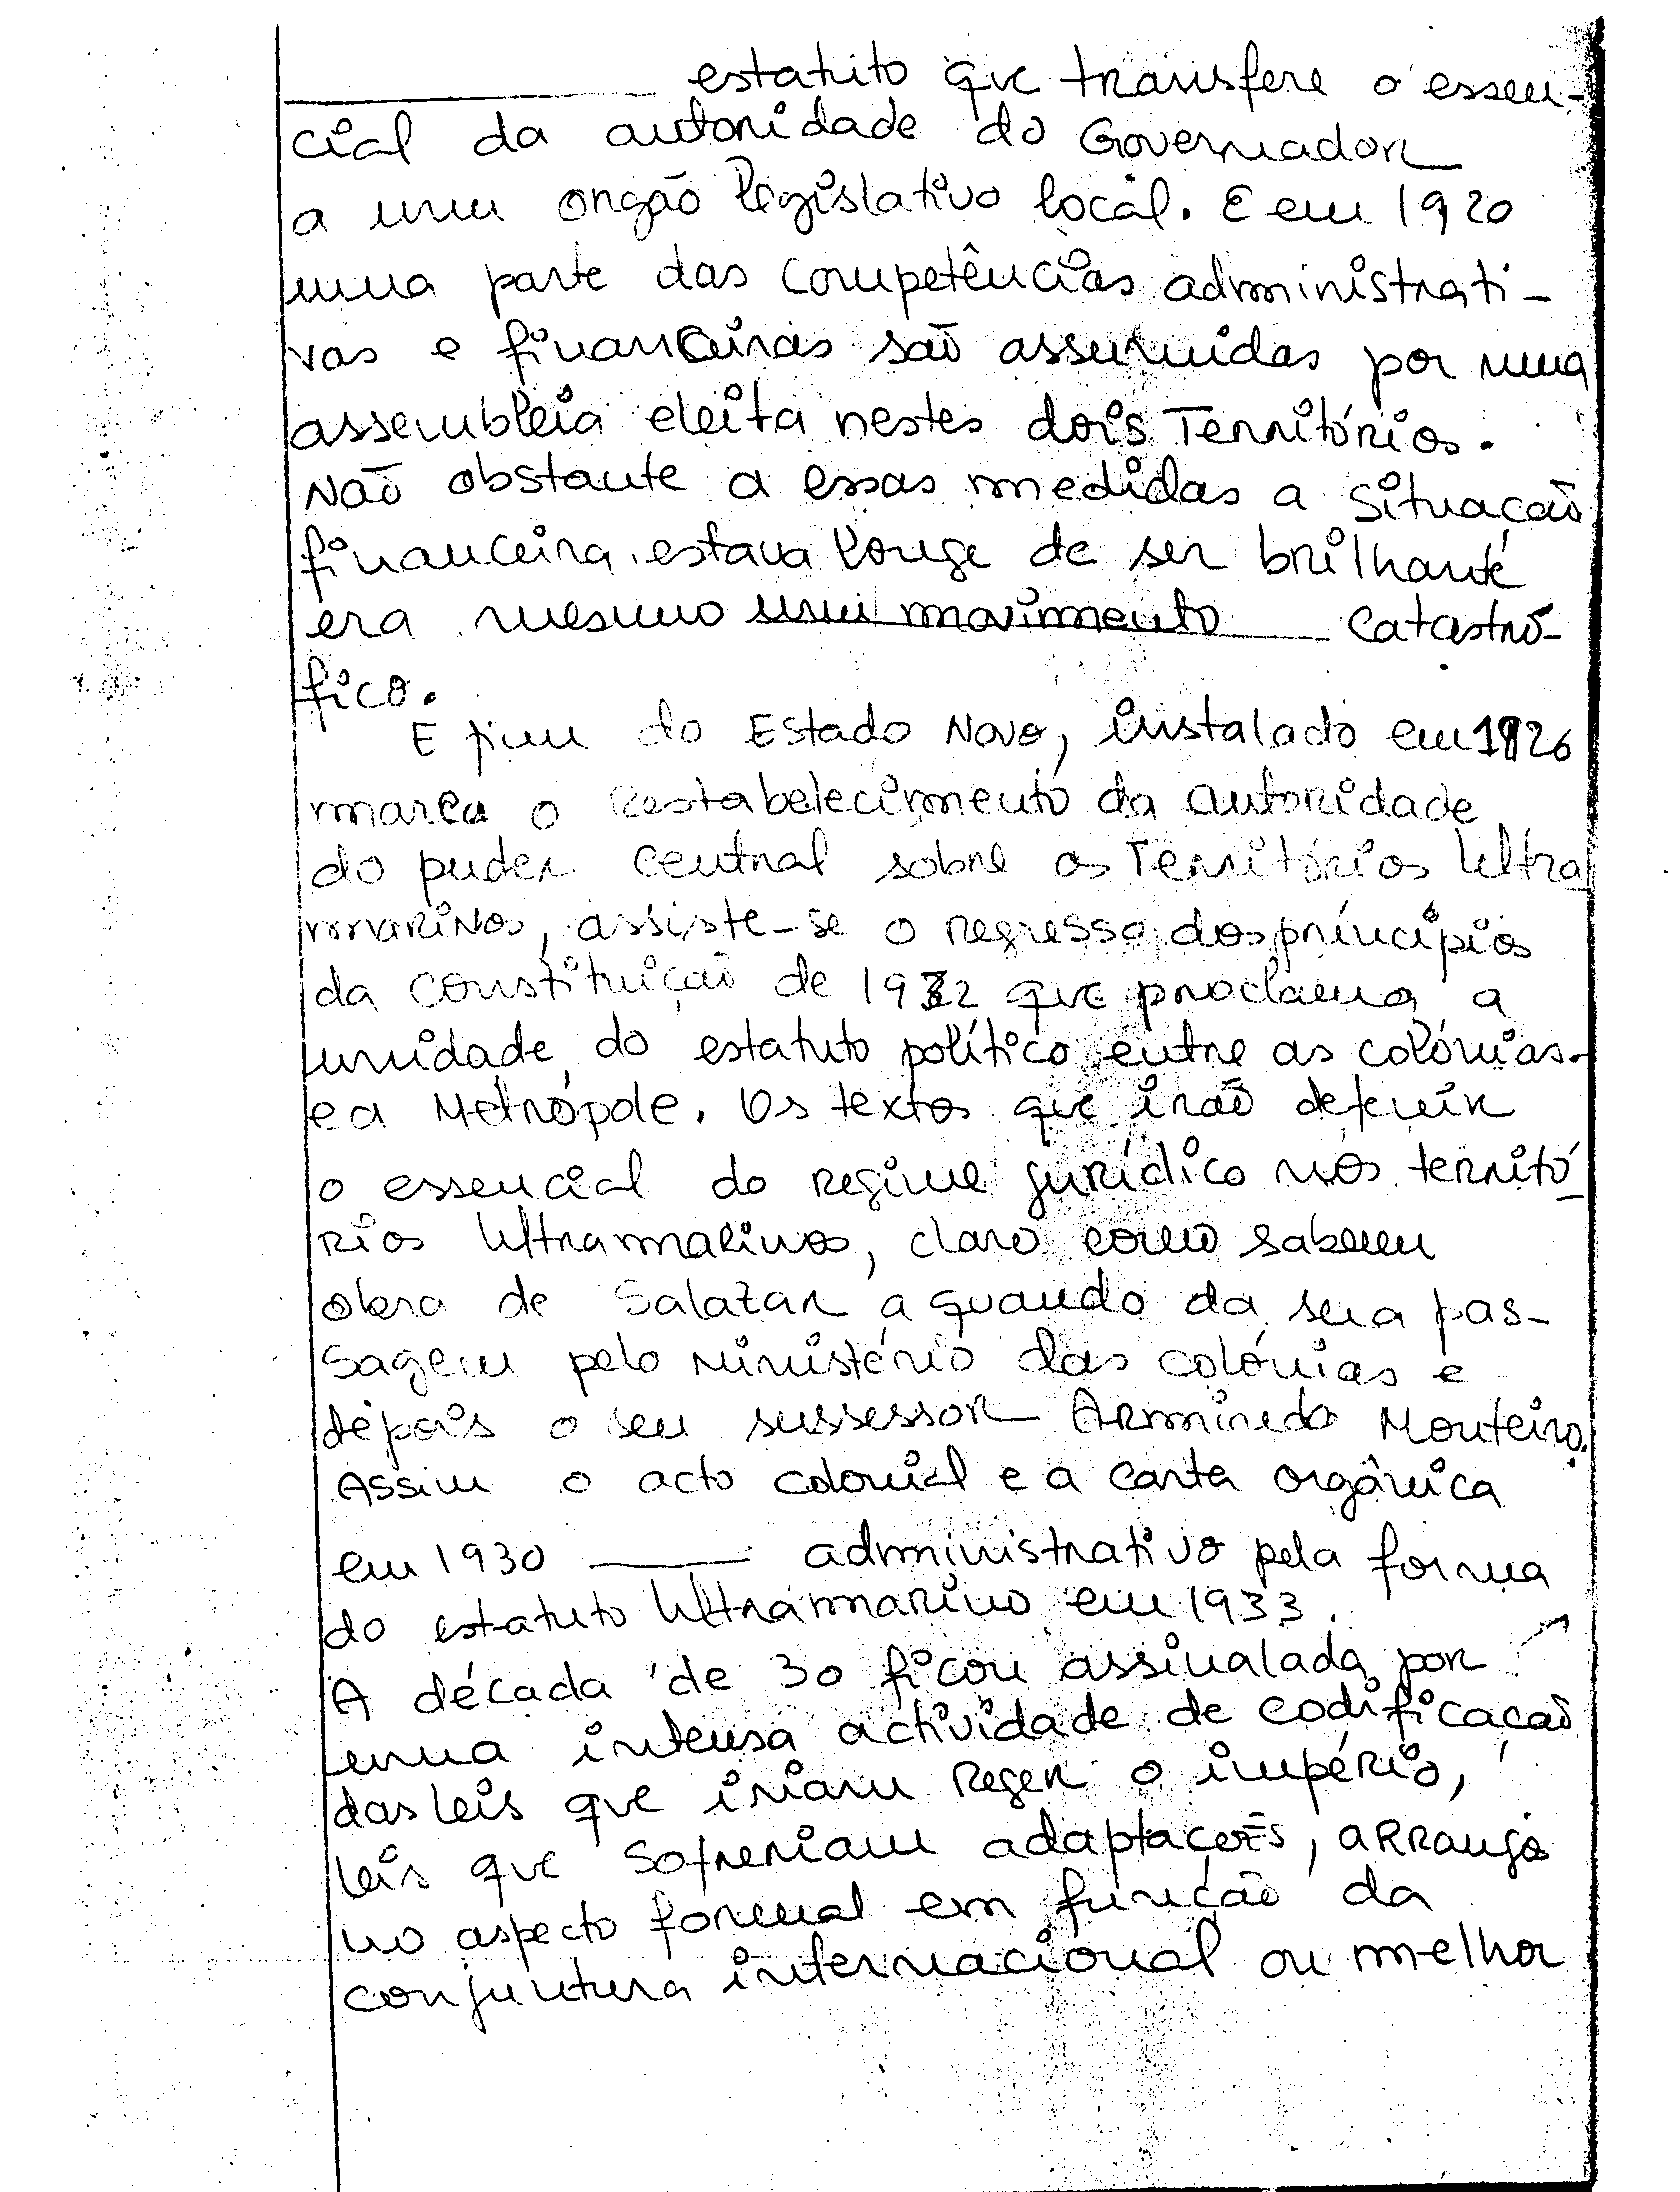 ________ estatuto que transfere o essen-
cial da autoridade do Governador
a um orgão legislativo local. E em 1920
uma parte das competências administrati-
vas e financeiras são assumidas por uma
assembleia eleita nestes dois Territórios.
Não obstante a essas medidas a situação
financeira estava longe de ser brilhante
era mesmo um movimento ____ catastró-
fico.
E fim do Estado Novo, instalado em 1926
marca o restabelecimento da autoridade
do puder central sobre os Territórios Ultra
marinos, assiste-se o regresso dos princípios
da constituição de 1932 que proclama a
unidade do estatuto político entre as colónias
e a Metrópole. Os textos que irão definir
o essencial do regime jurídico nos territó-
rios Ultramarinos, claro como sabem
obra de Salazar aquando da sua pas-
sagem pelo Ministério das colónias e
depois o seu sussessor Armindo Monteiro.
Assim o acto colonial e a carta orgânica
em 1930 ____ administrativo pela forma
do estatuto Ultramarino em 1933.
A década de 30 ficou assinalada por
uma intensa actividade de codificação
das leis que iriam reger o império,
leis que sofreriam adaptações, arranjos
no aspecto formal em função da
conjuntura internacional ou melhor